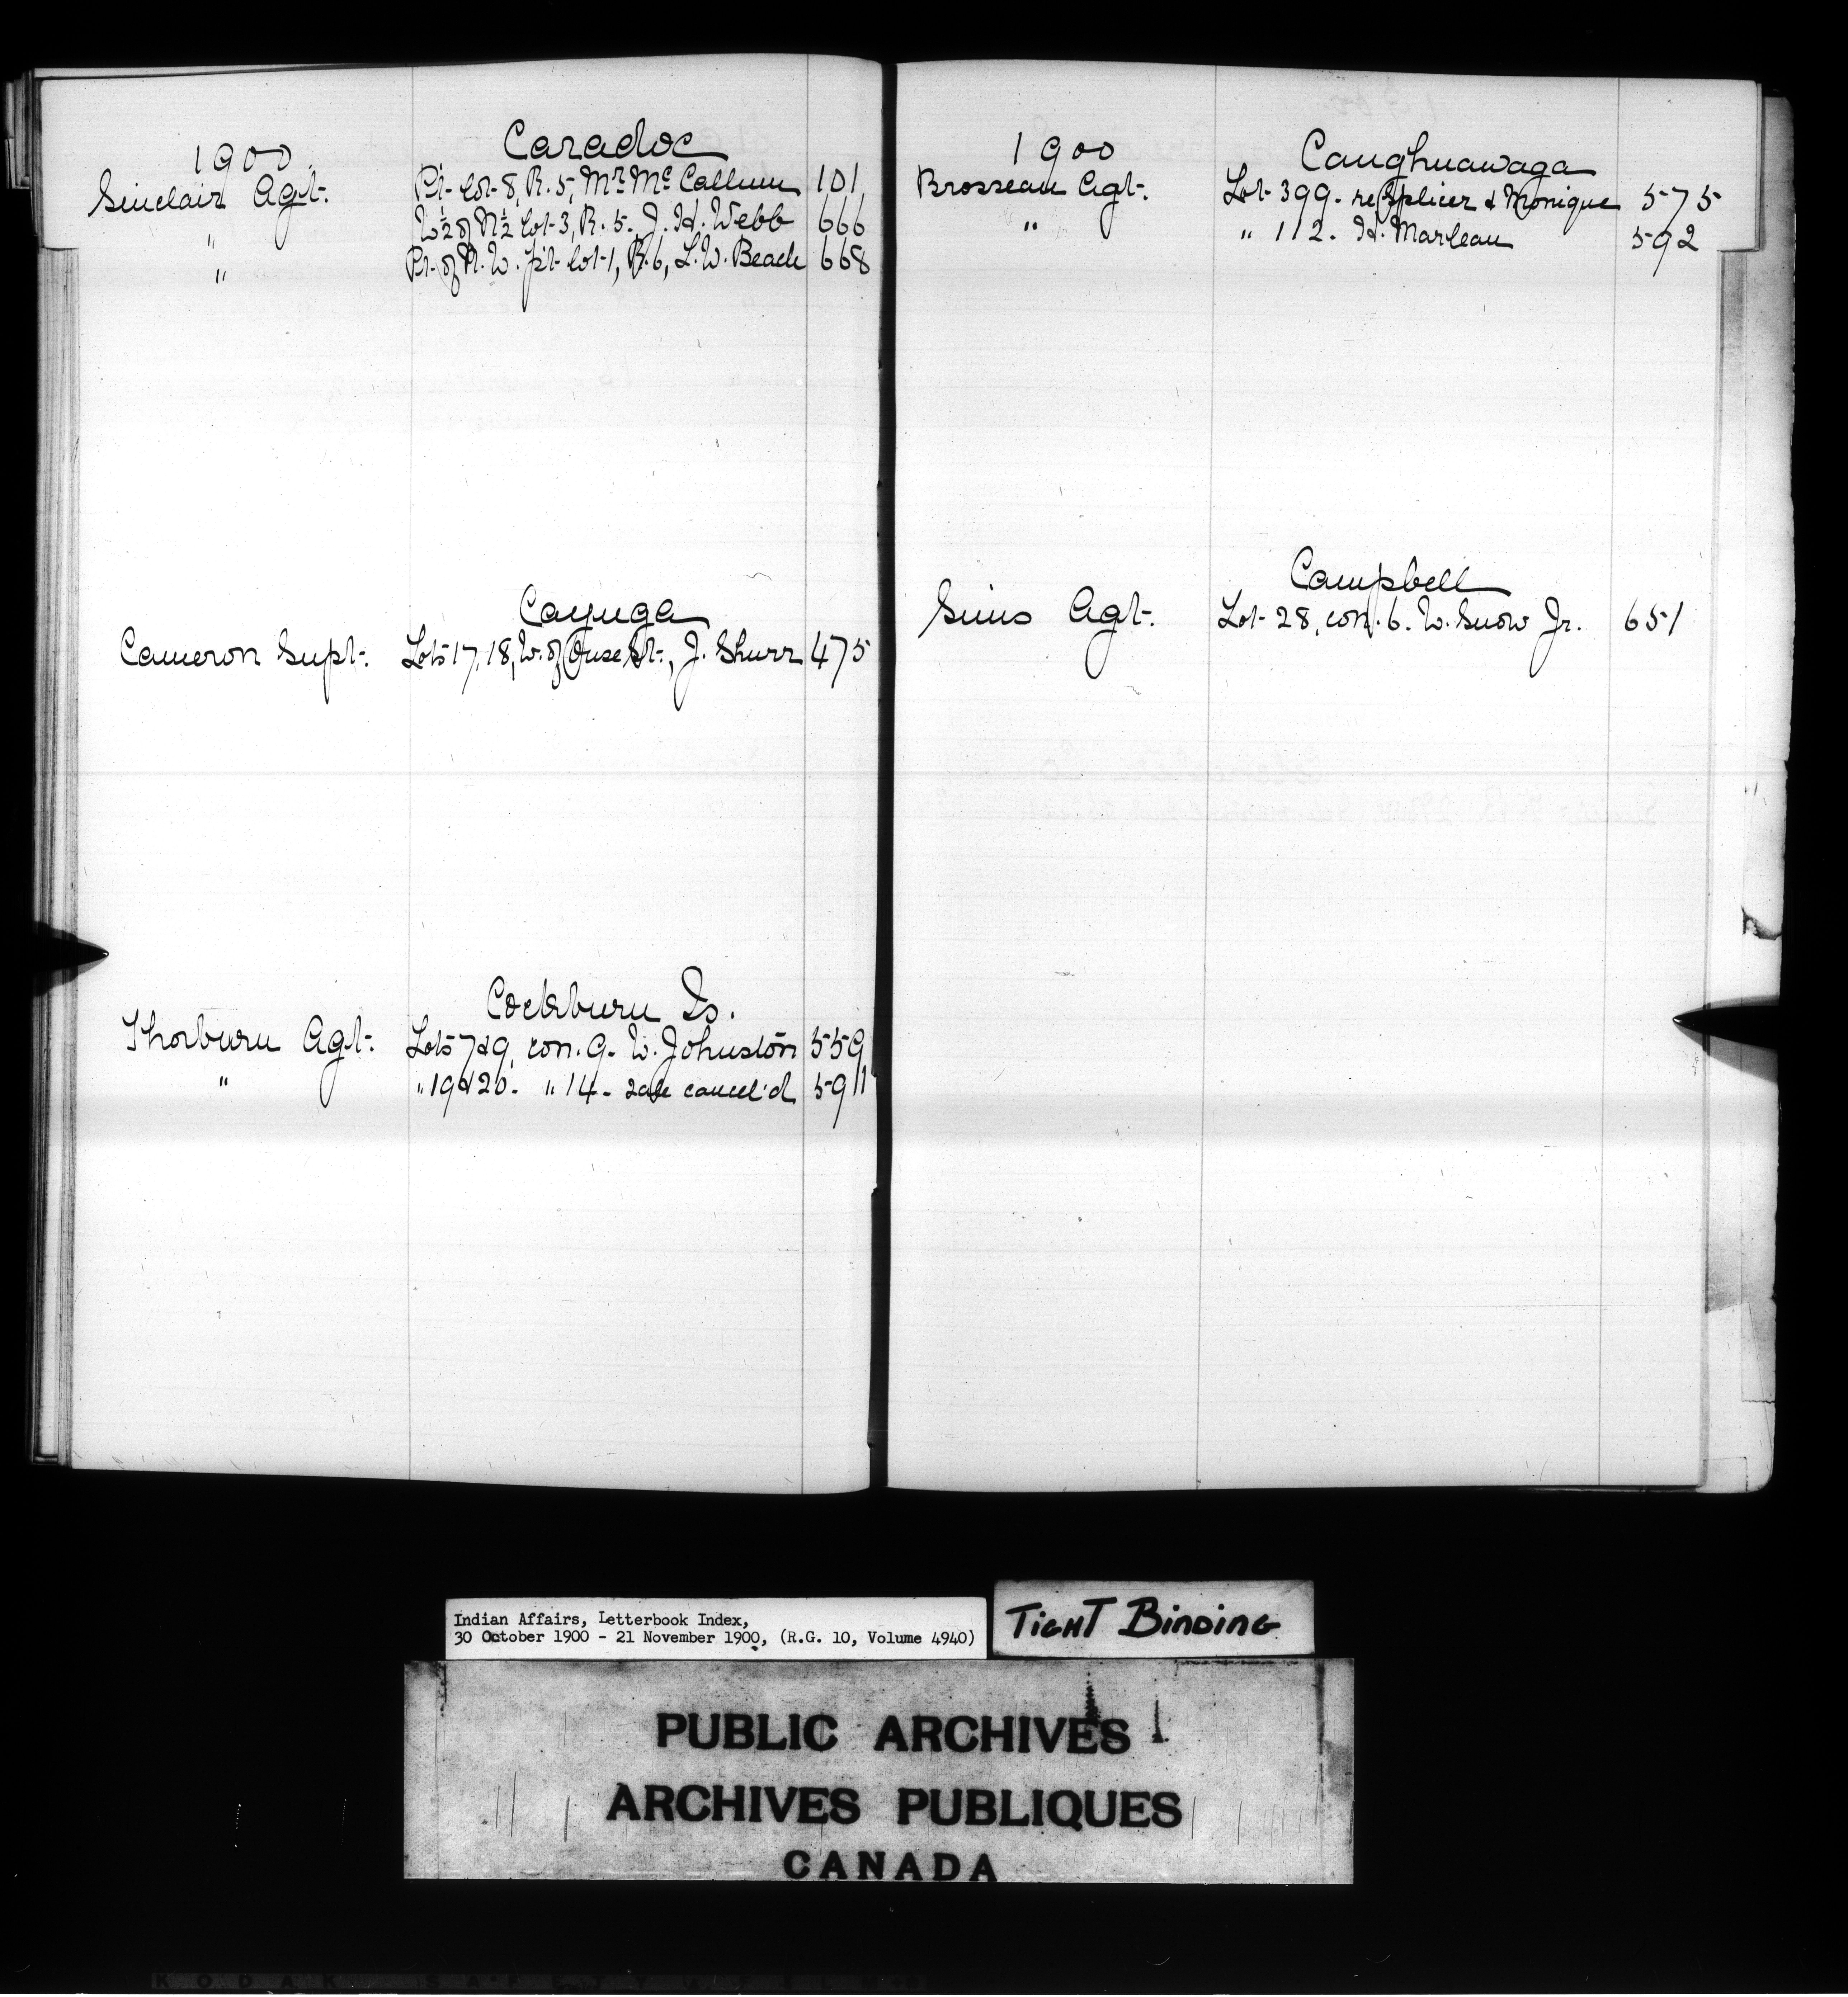 1900. Caradoc
Sinclair Agt. Pt. lot 8, R. 5, Mr. McCallum 101
" W ½ of N ½ lot 3, R. 5. J. H. Webb 666
" Pt. of N. W. pt lot 1, R. 6, L. W. Beach 668
Cayuga
Cameron Supt. Lots 17, 18, W. of Ouse St., J. Shurr 475
Cockburn Is.
Thorburn Agt. Lots 7 & 9, con. 9. W. Johnston 559
" " 19 & 20. " 14. sale cancel'd 591
1900 Caughnawaga
Brosseau Agt. Lot 399. re Splicer & Monique 575
" " 112. H. Marleau 592
Campbell
Sims Agt. Lot 28, con. 6. W. Snow Jr. 651
Indian Affairs, Letterbook Index,
30 October 1900 - 21 November 1900, (R.G. 10, Volume 4940)
TIGHT BINDING
PUBLIC ARCHIVES
ARCHIVES PUBLIQUES
CANADA
KODAK SAFETY FILM